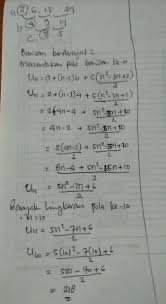 a (2) 6, 15, 29
b (4) 9 14
c (5) 5
Barisan bertingkat 2
Menentukan pola barisan ke-n
Un = a + (n-1)b + c(n²-3n+2)/2
Un = 2+(n-1)4 + 5(n²-3n+2)/2
= 2+4n-4 + 5n²-15n+10/2
= 4n-2 + 5n²-15n+10/2
= 2(4n-2)/2 + 5n²-15n+10/2
= 8n-4 + 5n²-15n+10/2
Un = 5n²-7n+6/2
Banyak lingkaran pola ke-10
n = 10
Un = 5n²-7n+6/2
U10 = 5(10)²-7(10)+6/2
= 500-70+6/2
= 218